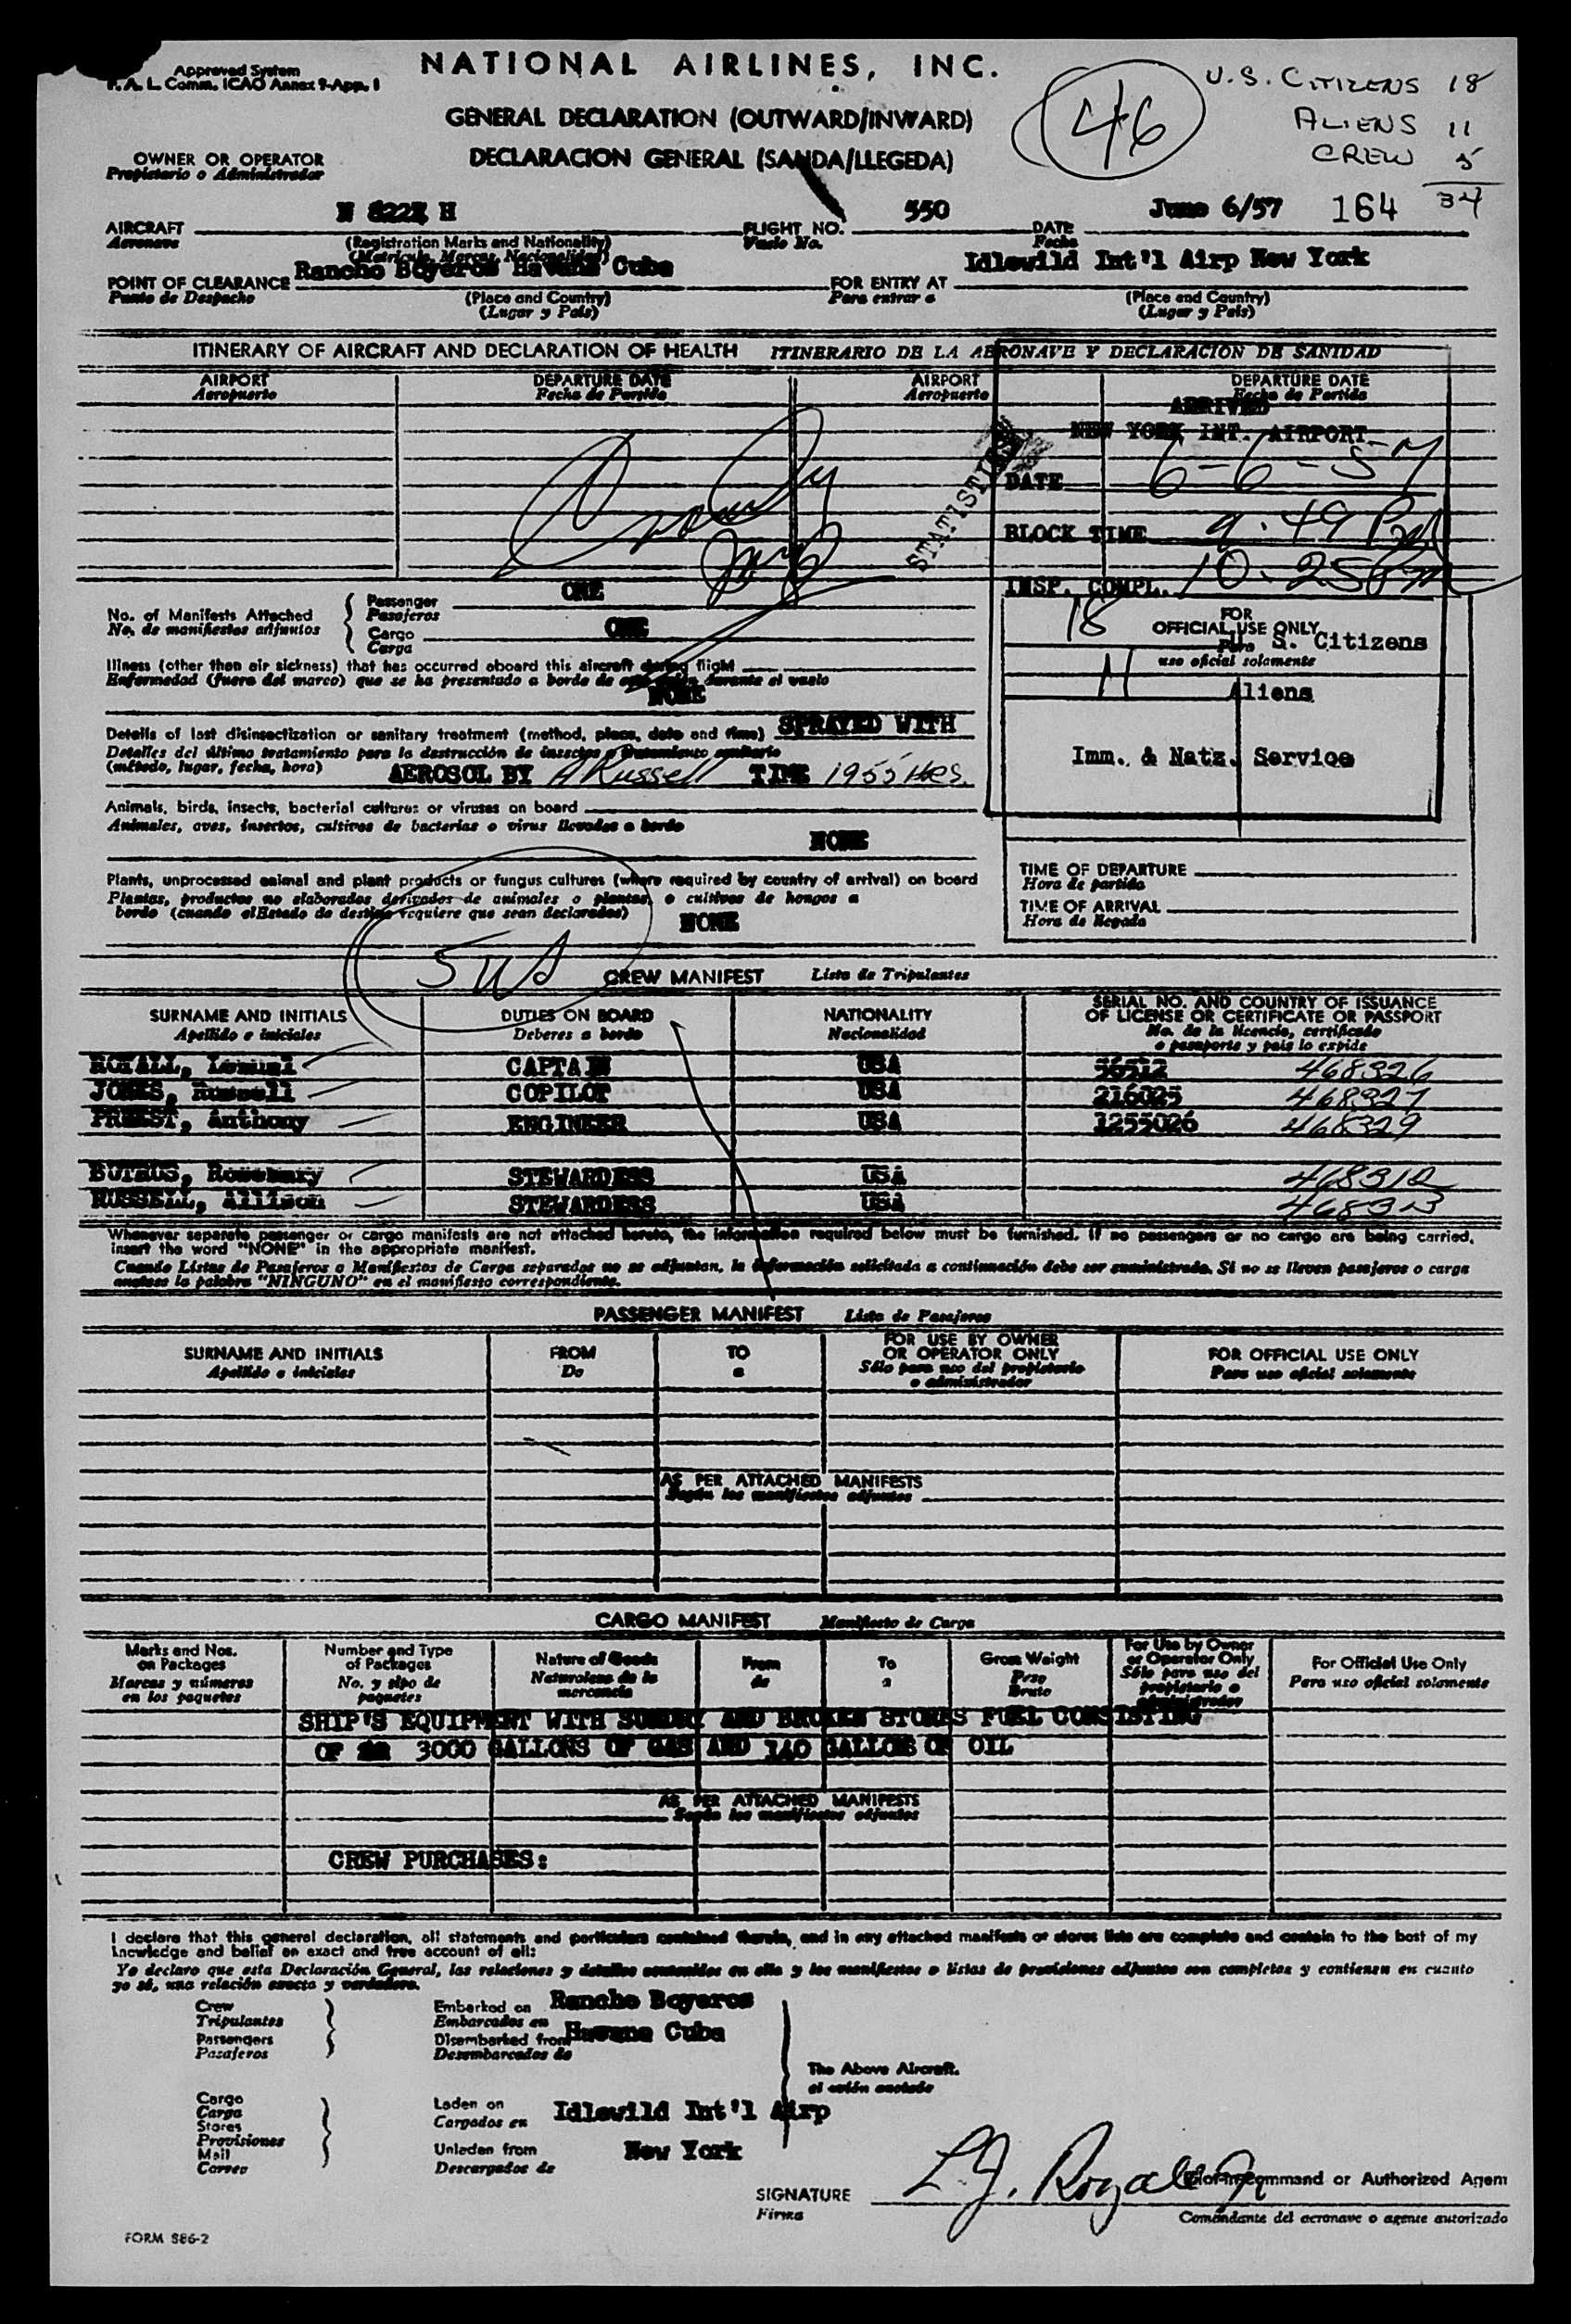 Approved System
F. A. L. Comm. ICAO Annex 9-App. 1
NATIONAL AIRLINES, INC.
GENERAL DECLARATION (OUTWARD/INWARD)
DECLARACION GENERAL (SANDA/LLEGEDA)
46
U.S. CITIZENS 18
ALIENS 11
CREW 5
34
OWNER OR OPERATOR
Propietario o Administrador
AIRCRAFT
Aeronave
(Registration Marks and Nationality)
(Matricula, Marcas, Nacionalidad)
FLIGHT NO. 550
Vuelo No.
DATE June 6/57 164
Fecha
POINT OF CLEARANCE Rancho Boyeros Havana Cuba
Punto de Despacho
(Place and Country)
(Lugar y Pais)
FOR ENTRY AT Idlewild Int'l Airp New York
Para entrar a
(Place and Country)
(Lugar y Pais)
ITINERARY OF AIRCRAFT AND DECLARATION OF HEALTH ITINERARIO DE LA AERONAVE Y DECLARACION DE SANIDAD
AIRPORT DEPARTURE DATE AIRPORT DEPARTURE DATE
Aeropuerto Fecha de Partida Aeropuerto Fecha de Partida
ARRIVED
NEW YORK INT. AIRPORT
DATE 6-6-57
BLOCK TIME 9:49 PM
INSP. COMPL. 10:25 PM
18 U. S. Citizens
11 Aliens
Imm. & Natz. Service
FOR
OFFICIAL USE ONLY
Para
uso oficial solamente
No. of Manifests Attached
No. de manifiestos adjuntos
Passenger ONE
Pasajeros
Cargo ONE
Carga
Illness (other than air sickness) that has occurred aboard this aircraft during flight
Enfermedad (fuera del mareo) que se ha presentado a bordo de durante el vuelo
NONE
Details of last disinsectization or sanitary treatment (method, place, date and time) SPRAYED WITH
Detalles del último tratamiento para la destrucción de insectos o tratamiento sanitario
(método, lugar, fecha, hora) AEROSOL BY A Russell TIME 1955 Hrs.
Animals, birds, insects, bacterial cultures or viruses on board
Animales, aves, insectos, cultivos de bacterias o virus llevados a bordo
NONE
Plants, unprocessed animal and plant products or fungus cultures (where required by country of arrival) on board
Plantas, productos no elaborados derivados de animales o plantas, o cultivos de hongos a
bordo (cuando el Estado de destino requiere que sean declarados) NONE
TIME OF DEPARTURE
Hora de partida
TIME OF ARRIVAL
Hora de llegada
CREW MANIFEST Lista de Tripulantes
SURNAME AND INITIALS DUTIES ON BOARD NATIONALITY SERIAL NO. AND COUNTRY OF ISSUANCE
OF LICENSE OR CERTIFICATE OR PASSPORT
Apellido e iniciales Deberes a bordo Nacionalidad No. de la licencia, certificado
o pasaporte y pais lo expide
ROYALL, CAPTAIN USA 56512 468326
JONES, Russell COPILOT USA 216025 468327
PRIEST, Anthony ENGINEER USA 1255026 468329
BUTRUS, Rosemary STEWARDESS USA
RUSSELL, Allison STEWARDESS USA
Whenever separate passenger or cargo manifests are not attached hereto, the information required below must be furnished. If no passengers or no cargo are being carried,
insert the word "NONE" in the appropriate manifest.
Cuando Listas de Pasajeros o Manifiestos de Carga separados no se adjuntan, la información solicitada a continuación debe ser suministrada. Si no se llevan pasajeros o carga
anotese la palabra "NINGUNO" en el manifiesto correspondiente.
PASSENGER MANIFEST Lista de Pasajeros
SURNAME AND INITIALS FROM TO FOR USE BY OWNER
OR OPERATOR ONLY FOR OFFICIAL USE ONLY
Apellido e iniciales De a Sólo para uso del propietario
o administrador Para uso oficial solamente
AS PER ATTACHED MANIFESTS
Según los manifiestos adjuntos
CARGO MANIFEST Manifiesto de Carga
Marks and Nos.
on Packages
Marcas y números
en los paquetes
Number and Type
of Packages
No. y tipo de
paquetes
Nature of Goods
Naturaleza de la
mercancia
From
de
To
a
Gross Weight
Peso
Bruto
For Use by Owner
or Operator Only
Sólo para uso del
propietario o
administrador
For Official Use Only
Para uso oficial solamente
SHIP'S EQUIPMENT WITH SUNDRY AND BROKEN STORES FUEL CONSISTING
OF 3000 GALLONS OF GAS AND 140 GALLONS OF OIL
AS PER ATTACHED MANIFESTS
Según los manifiestos adjuntos
CREW PURCHASES:
I declare that this general declaration, all statements and particulars contained therein, and in any attached manifests or stores lists are complete and contain to the best of my
knowledge and belief an exact and true account of all:
Yo declaro que esta Declaración General, las relaciones y detalles contenidos en ella y los manifiestos o listas de provisiones adjuntos son completas y contienen en cuanto
yo sé, una relación exacta y verdadera.
Crew
Tripulantes
Passengers
Pasajeros
Embarked on Rancho Boyeros
Embarcados en
Disembarked from Havana Cuba
Desembarcados de
The Above Aircraft.
el avión anotado
Cargo
Carga
Stores
Provisiones
Mail
Correo
Laden on Idlewild Int'l Airp
Cargados en
Unladen from New York
Descargados de
SIGNATURE L.J. Royall Jr
Firma
Pilot in Command or Authorized Agent
Comandante del aeronave o agente autorizado
FORM S86-2